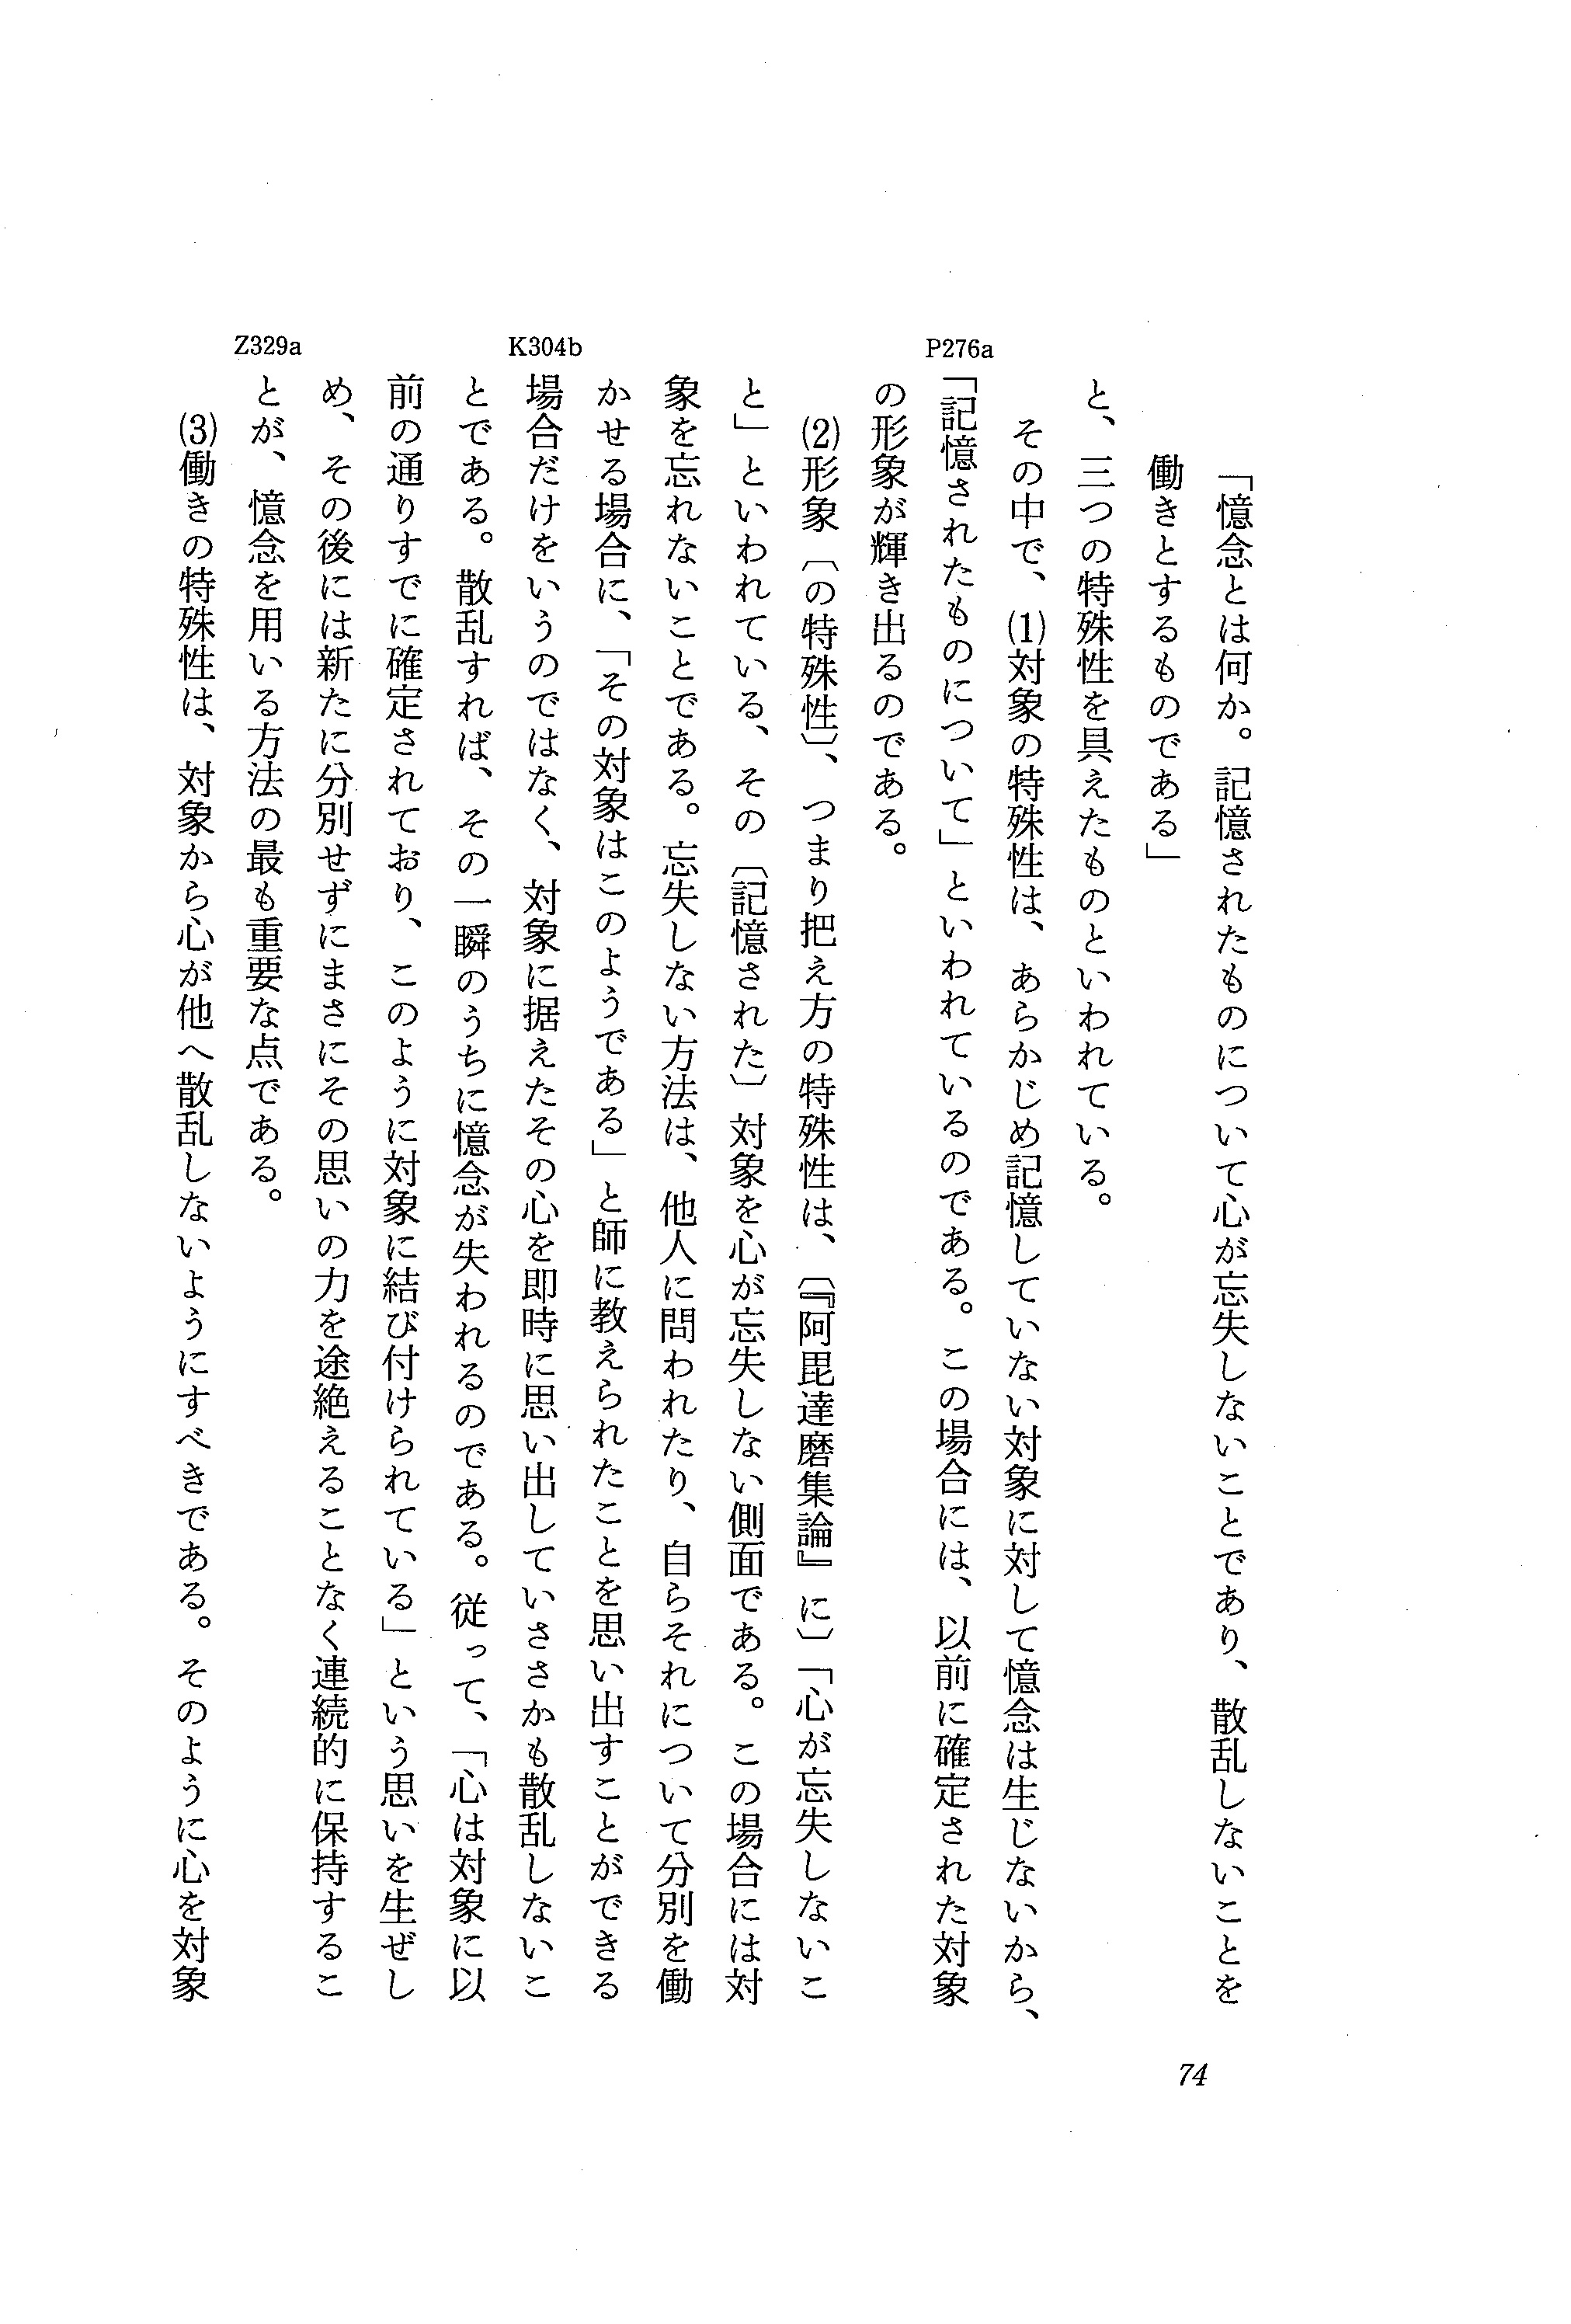 「憶念とは何か。記憶されたものについて心が忘失しないことであり、散乱しないことを
働きとするものである」
と、三つの特殊性を具えたものといわれている。
その中で、(1)対象の特殊性は、あらかじめ記憶していない対象に対して憶念は生じないから、
P276a
「記憶されたものについて」といわれているのである。この場合には、以前に確定された対象
の形象が輝き出るのである。
(2)形象〔の特殊性〕、つまり把え方の特殊性は、〔『阿毘達磨集論』に〕「心が忘失しないこ
と」といわれている、その〔記憶された〕対象を心が忘失しない側面である。この場合には対
象を忘れないことである。忘失しない方法は、他人に問われたり、自らそれについて分別を働
かせる場合に、「その対象はこのようである」と師に教えられたことを思い出すことができる
K304b
場合だけをいうのではなく、対象に据えたその心を即時に思い出していささかも散乱しないこ
とである。散乱すれば、その一瞬のうちに憶念が失われるのである。従って、「心は対象に以
前の通りすでに確定されており、このように対象に結び付けられている」という思いを生ぜし
め、その後には新たに分別せずにまさにその思いの力を途絶えることなく連続的に保持するこ
Z329a
とが、憶念を用いる方法の最も重要な点である。
(3)働きの特殊性は、対象から心が他へ散乱しないようにすべきである。そのように心を対象
74